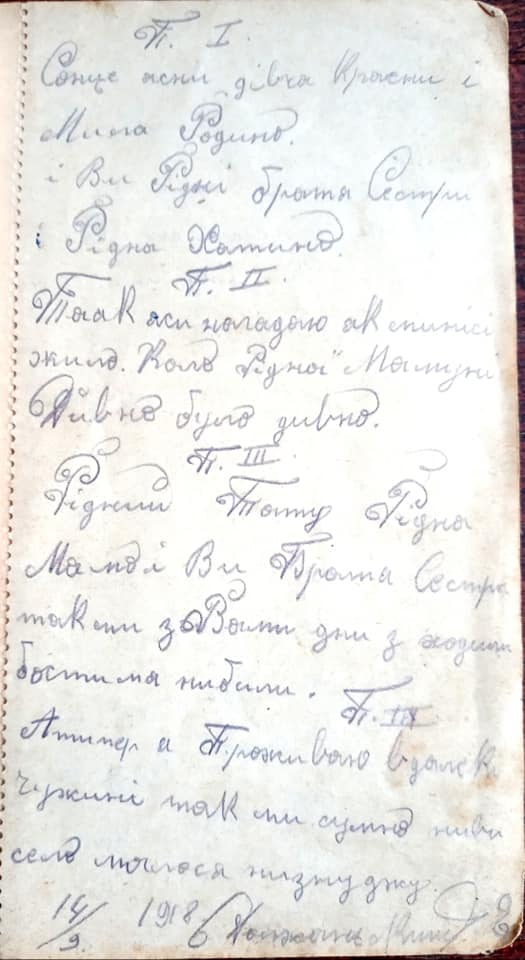 П. I.
Сонце ясни дівча красни і
Мила Родино.
і Ви Рідні брати Сестри
і Рідна Хатино.
П. II.
Таак яси нагадаю як минісі
жило. Коло Рідної Мамуні
Дивно було дивно.
П. III.
Рідний Тату Рідна
Мамо і Ви Брата Сестра
такми за Вами дни з ходили
бостима нибили.
П. III
Атипер я Проживаю вдалекі
чужині так ми сумно
село
14/9. 1918